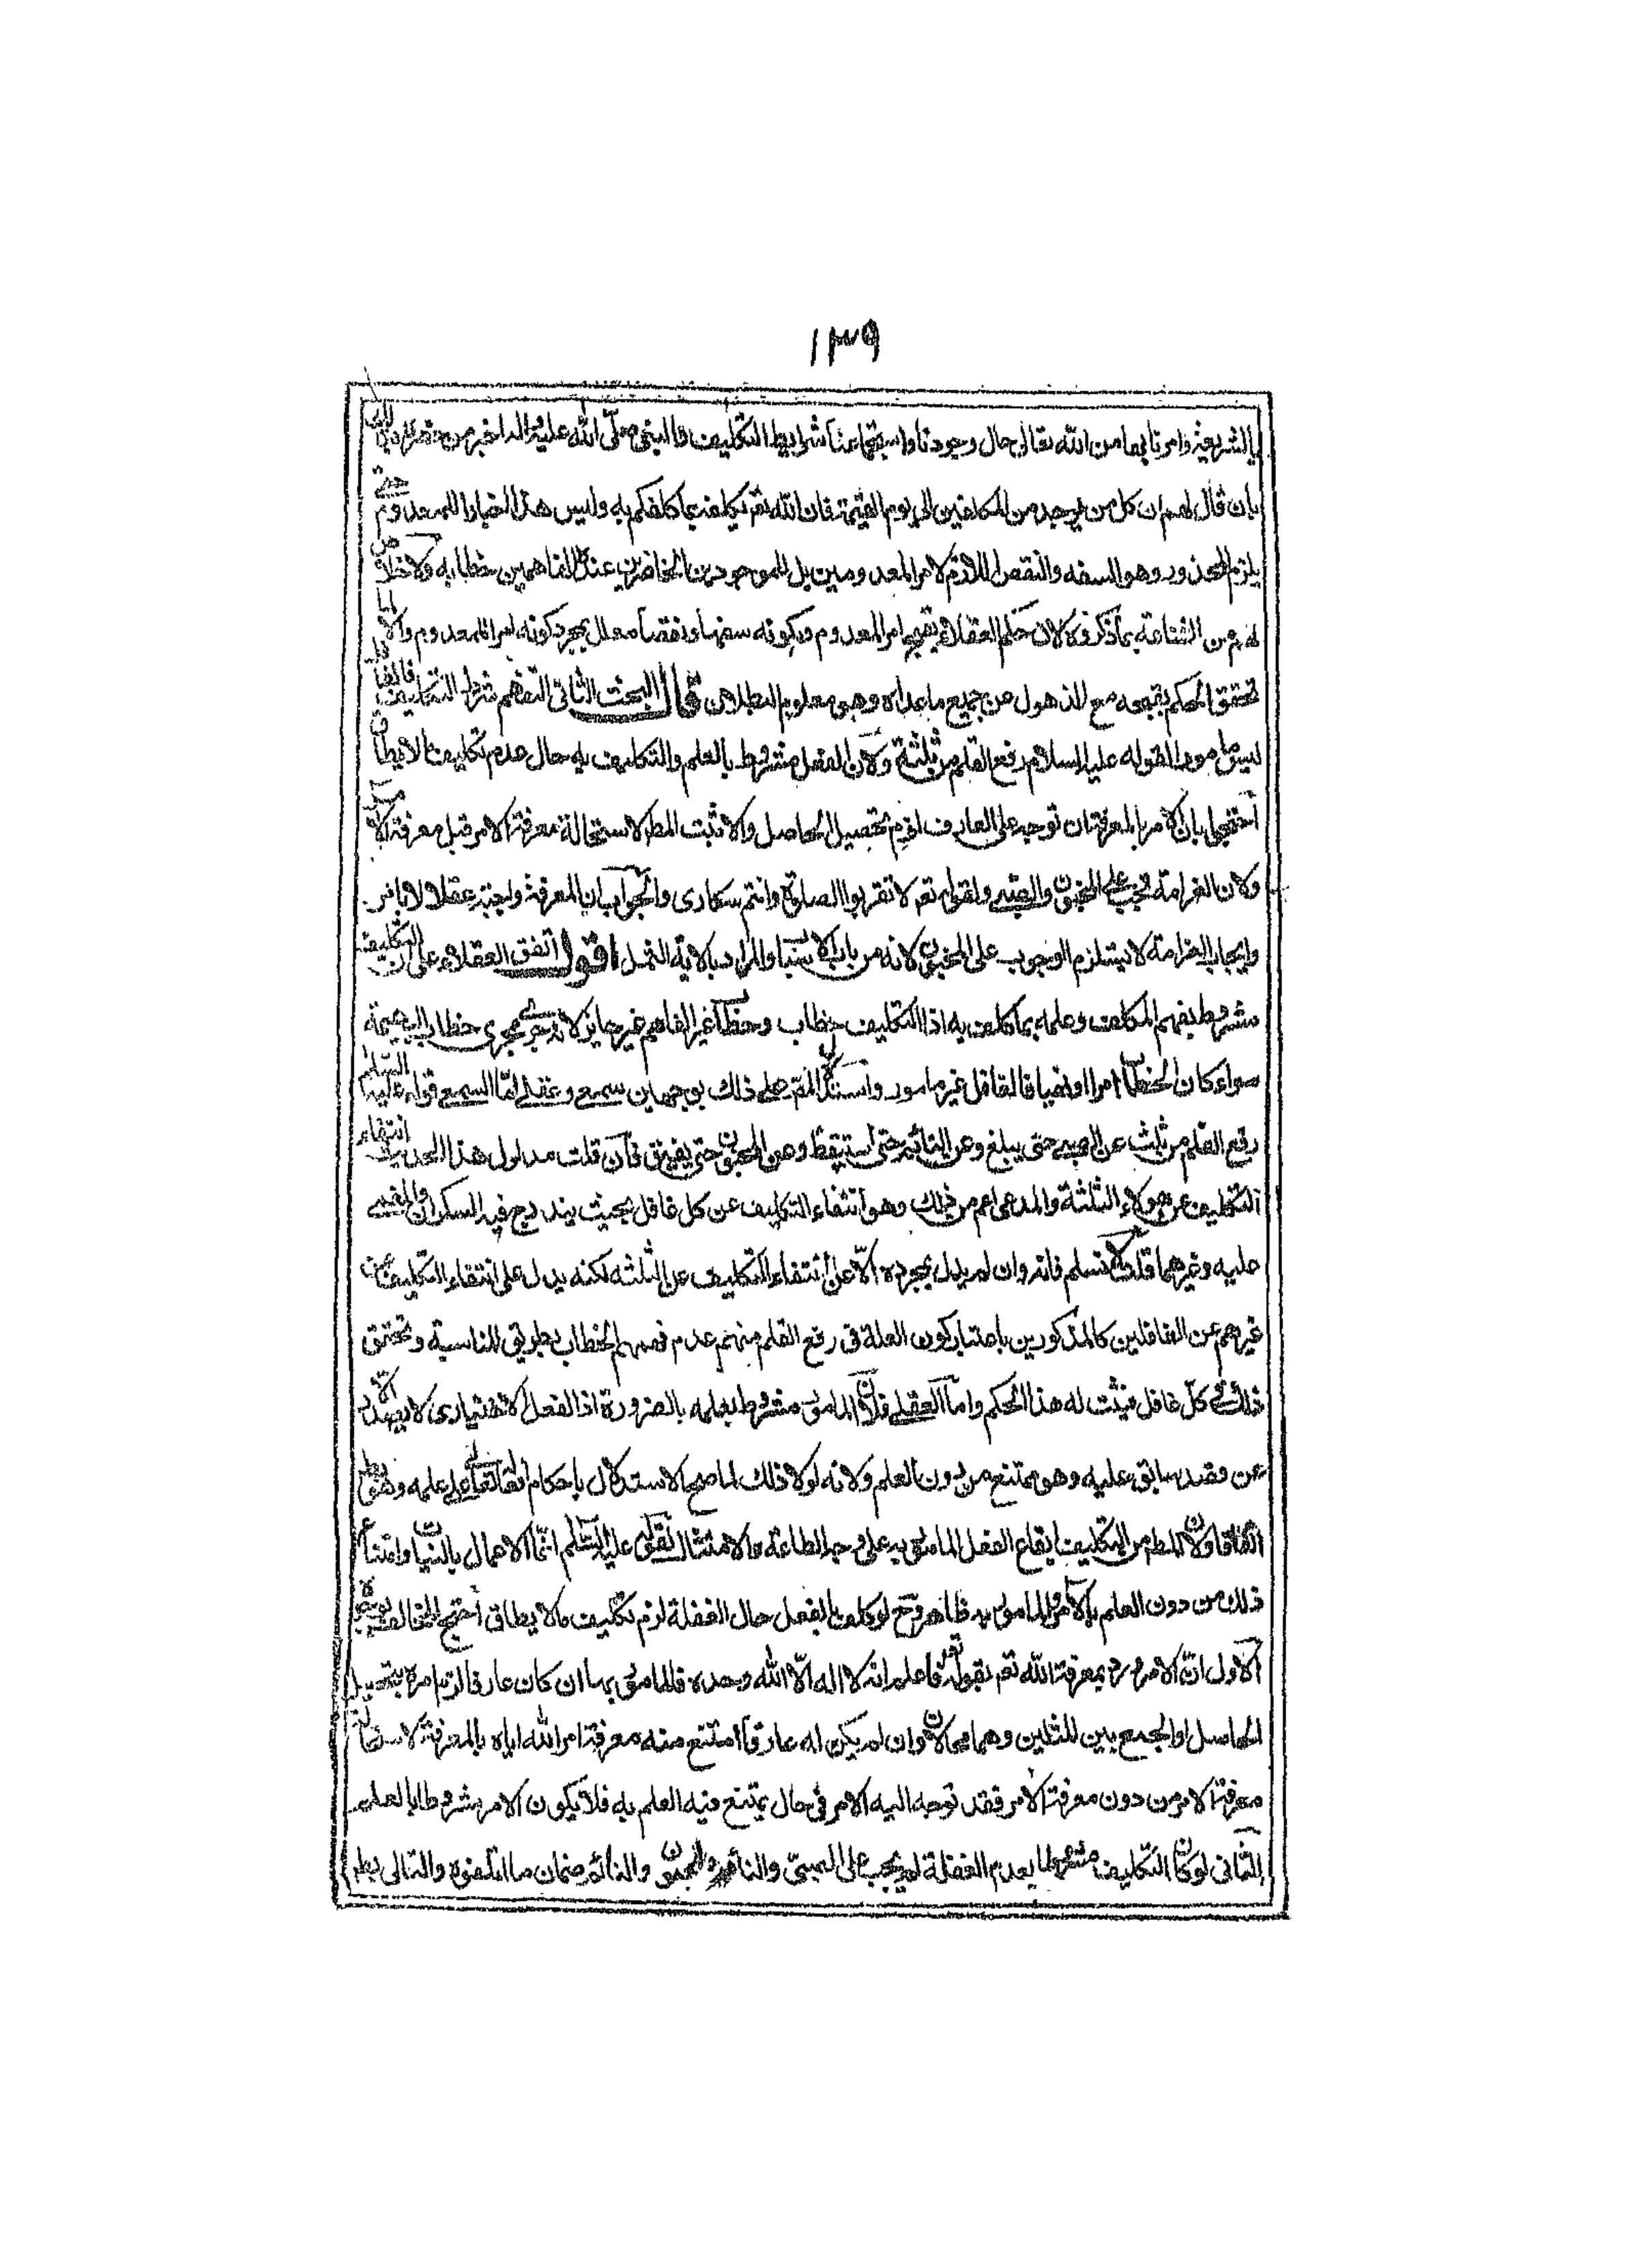 ١٣٩
بالشريعة وامرنا بها من الله تعالى حال وجودنا واستجماعنا شرايط التكليف فالنبي صلى الله عليه واله اخبر من حضر
بان قال لهم ان كل من يوجد من المكلفين الى يوم القيمة فان الله تع يكلفه بما كلفكم به وليس هذا اخبارا للمعدوم حتى
يلزم المحذور وهو السفه والنقص اللازم لامر المعدومين بل للموجودين الحاضرين عنده الفاهمين خطابه ولا خلاص
لهم من الشناعة بما ذكروه لان حكم العقلاء بقبح امر المعدوم وبكونه سفها ونقصا معلل بمجرد كونه امرا للمعدوم والا لما
تحقق الحكم بقبحه مع الذهول عن جميع ما عداه وهو معلوم البطلان قال البحث الثاني التفهم شرط التكليف فالغافل
ليس مامورا لقوله عليه السلام رفع القلم من ثلثة ولان الفعل مشروط بالعلم والتكليف به حال عدمه تكليف ما لا يطاق
احتجوا بان الامر بالمعرفة ان توجه على العارف لزم تحصيل الحاصل والا ثبت المط لاستحالة معرفة الامر قبل معرفة الآمر
ولان الغرامة تجب على المجنون والصبي ولقوله تع لا تقربوا الصلوة وانتم سكارى والجواب ان المعرفة واجبة عقلا لا بالامر
وايجاب الغرامة لا يستلزم الوجوب على المجنون لانه من باب الاسباب والمراد بالاية الثمل اقول اتفق العقلاء على ان التكليف
مشروط بفهم المكلف وعلمه بما كلف به اذ التكليف خطاب وخطاب غير الفاهم غير جايز لانه جرى مجرى خطاب البهيمة
سواء كان الخطاب امرا او نهيا فالغافل غير مامور واستدل المص على ذلك بوجهين سمعي وعقلي اما السمعي قوله عليه السلام
رفع القلم من ثلث عن الصبي حتى يبلغ وعن النائم حتى استيقظ وعن المجنون حتى يفيق فان قلت مدلول هذا الحديث انتفاء
التكليف عن هولاء الثلثة والمدعى اعم من ذلك وهو انتفاء التكليف عن كل غافل بحيث يندرج فيه السكران والمغمى
عليه وغيرهما قلت لا نسلم فانه وان لم يدل بمجرده الا على انتفاء التكليف عن الثلثة لكنه يدل على انتفاء التكليف عن
غيرهم من الغافلين كالمذكورين باعتبار كون العلة في رفع القلم عنهم عدم فهمهم الخطاب بطريق المناسبة وتحقق
ذلك في كل غافل فيثبت له هذا الحكم واما العقلي فلان المامور مشروط بعلمه بالضرورة اذ الفعل الاختياري لا يصدر الا
عن قصد سابق عليه وهو ممتنع من دون العلم ولانه لولا ذلك لما صح الاستدلال باحكام افعاله تعالى على علمه وهو بط
اتفاقا ولان المط من التكليف ايقاع الفعل المامور به على وجه الطاعة والامتثال لقوله عليه السلم انما الاعمال بالنيات وامتناع
ذلك من دون العلم بالامر والمامور به ظاهر وح لو كلف بالفعل حال الغفلة لزم تكليف ما لا يطاق احتج المخالف بوجوه
الاول ان الامر ورد بمعرفة الله تع بقوله تع فاعلم انه لا اله الا الله وحده فالمامور بها ان كان عارفا لزم امره بتحصيل
الحاصل او الجمع بين المثلين وهما محالان وان لم يكن له عارفا امتنع منه معرفة امر الله اياه بالمعرفة لاستحالة
معرفة الامر من دون معرفة الآمر فقد توجه اليه الامر في حال يمتنع فيه العلم به فلا يكون الامر مشروطا بالعلم
الثاني لو كان التكليف مشروطا بعدم الغفلة لم يجب على الصبي والنائم والمجنون والنائم ضمان ما اتلفوه والتالي بط